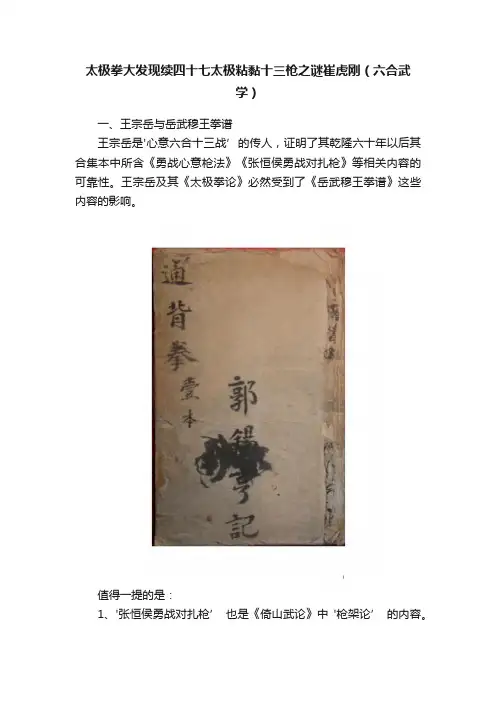 太极拳大发现续四十七太极粘黏十三枪之谜崔虎刚（六合武
学）
一、王宗岳与岳武穆王拳谱
王宗岳是‘心意六合十三战’的传人，证明了其乾隆六十年以后其
合集本中所含《勇战心意枪法》《张恒侯勇战对扎枪》等相关内容的
可靠性。王宗岳及其《太极拳论》必然受到了《岳武穆王拳谱》这些
内容的影响。
通背拳壹本
郭錫亨記
值得一提的是：
1、‘张恒侯勇战对扎枪’ 也是《倚山武论》中 ‘枪架论’ 的内容。